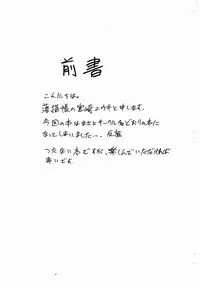 前書
こんにちは。
薄揚帳の宮崎ユウキと申します。
今回の本はまさにサークル名どおりの本に
なってしまいました…。反省
つたない本ですが、楽しんでいただければ
幸いです。